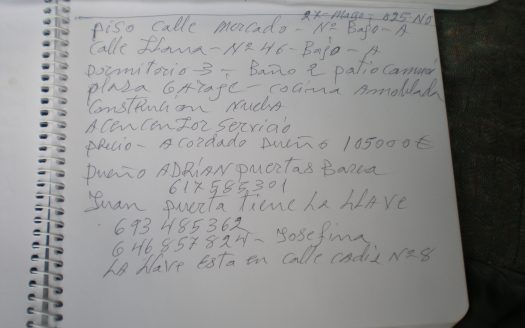 27-Mayo-025-NO
piso calle mercado - Nº Bajo - A
calle Llana - Nº 46 - Bajo - A
Dormitorio 3 - Baño 2 patio comun
plaza GARAJE - cocina Amoblada
Construcion Nueba
Acencensor Servicio
precio - Acordado Dueño 105000 €
Dueño ADRIAN puertas Barea
617585301
Juan puerta tiene LA LLAVE
693 485362
646857824 - Josefina
LA llave Esta en calle cadiz Nº 8